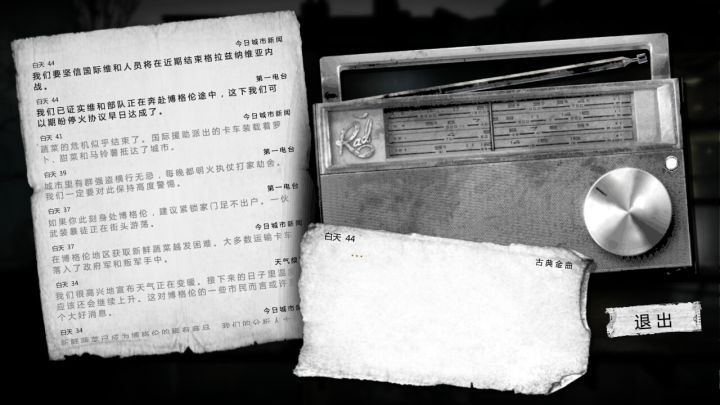 今日城市新闻
白天 44
我们要坚信国际维和人员将在近期结束格拉兹纳维亚内
战。
第一电台
白天 44
我们已证实维和部队正在奔赴博格伦途中，这下我们可
以期盼停火协议早日达成了。
今日城市新闻
白天 41
蔬菜的危机似乎结束了。国际援助派出的卡车装载着萝
卜、甜菜和马铃薯抵达了城市。
第一电台
白天 39
城市里有群强盗横行无忌，每晚都明火执仗打家劫舍。
我们一定要对此保持高度警惕。
第一电台
白天 37
如果你此刻身处博格伦，建议紧锁家门足不出户。一伙
武装暴徒正在街头游荡。
今日城市新闻
白天 37
在博格伦地区获取新鲜蔬菜越发困难。大多数运输卡车
落入了政府军和叛军手中。
天气
白天 34
我们很高兴地宣布天气正在变暖。接下来的日子里温
应该还会继续上升。这对博格伦的一些市民而言或许
个大好消息。
今日城市
白天 34
新鲜蔬菜已成为博格伦的稀有商品
Rad
白天 44
...
古典金曲
退出